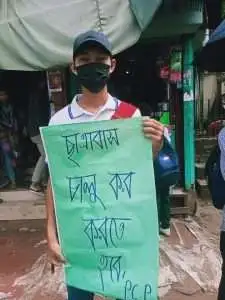 ছাত্রাবাস
চালু কর
করতে
হবে,
P.C.P